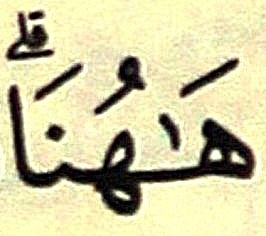 هَـٰهُنَاۗ